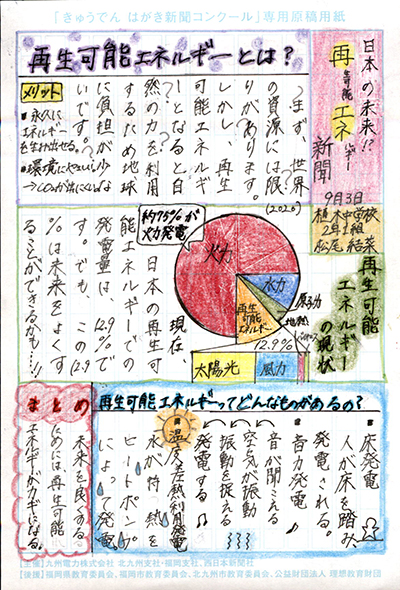 「きゅうでん はがき新聞コンクール」専用原稿用紙
日本の未来!?
再生可能エネルギー
新聞
9月3日
植木中学校
2年1組
松尾 結菜
再生可能エネルギーとは?
まず、世界
の資源には限
りがあります。
しかし、再生
可能エネルギ
ーとなると自
然の力を利用
するため地球
に負担が
いです。
メリット
・永久に
エネルギー
を生み出せる。
・環境にやさしい
再生可能
エネルギー
の現状
(2020)
約75%が
火力発電
火力
水力
原子力
地熱
再生可能
エネルギー
12.9%
太陽光
風力
現在
日本の再生可
能エネルギーでの
発電量は12.9%で
す。でも、この12.9
%は未来をよくす
ることができるかも…!!
再生可能エネルギーってどんなものがあるの?
床発電
人が床を踏み、
発電される。
音力発電
音が聞こえる
空気が振動
振動を捉える
発電する
温度差熱利用発電
水が持つ熱を
ヒートポンプ
によって発電。
まとめ
未来を良くする
ためには再生可能
エネルギーがカギになる。
【主催】九州電力株式会社 北九州支社・福岡支社、西日本新聞社
【後援】福岡県教育委員会、福岡市教育委員会、北九州市教育委員会、公益財団法人 理想教育財団